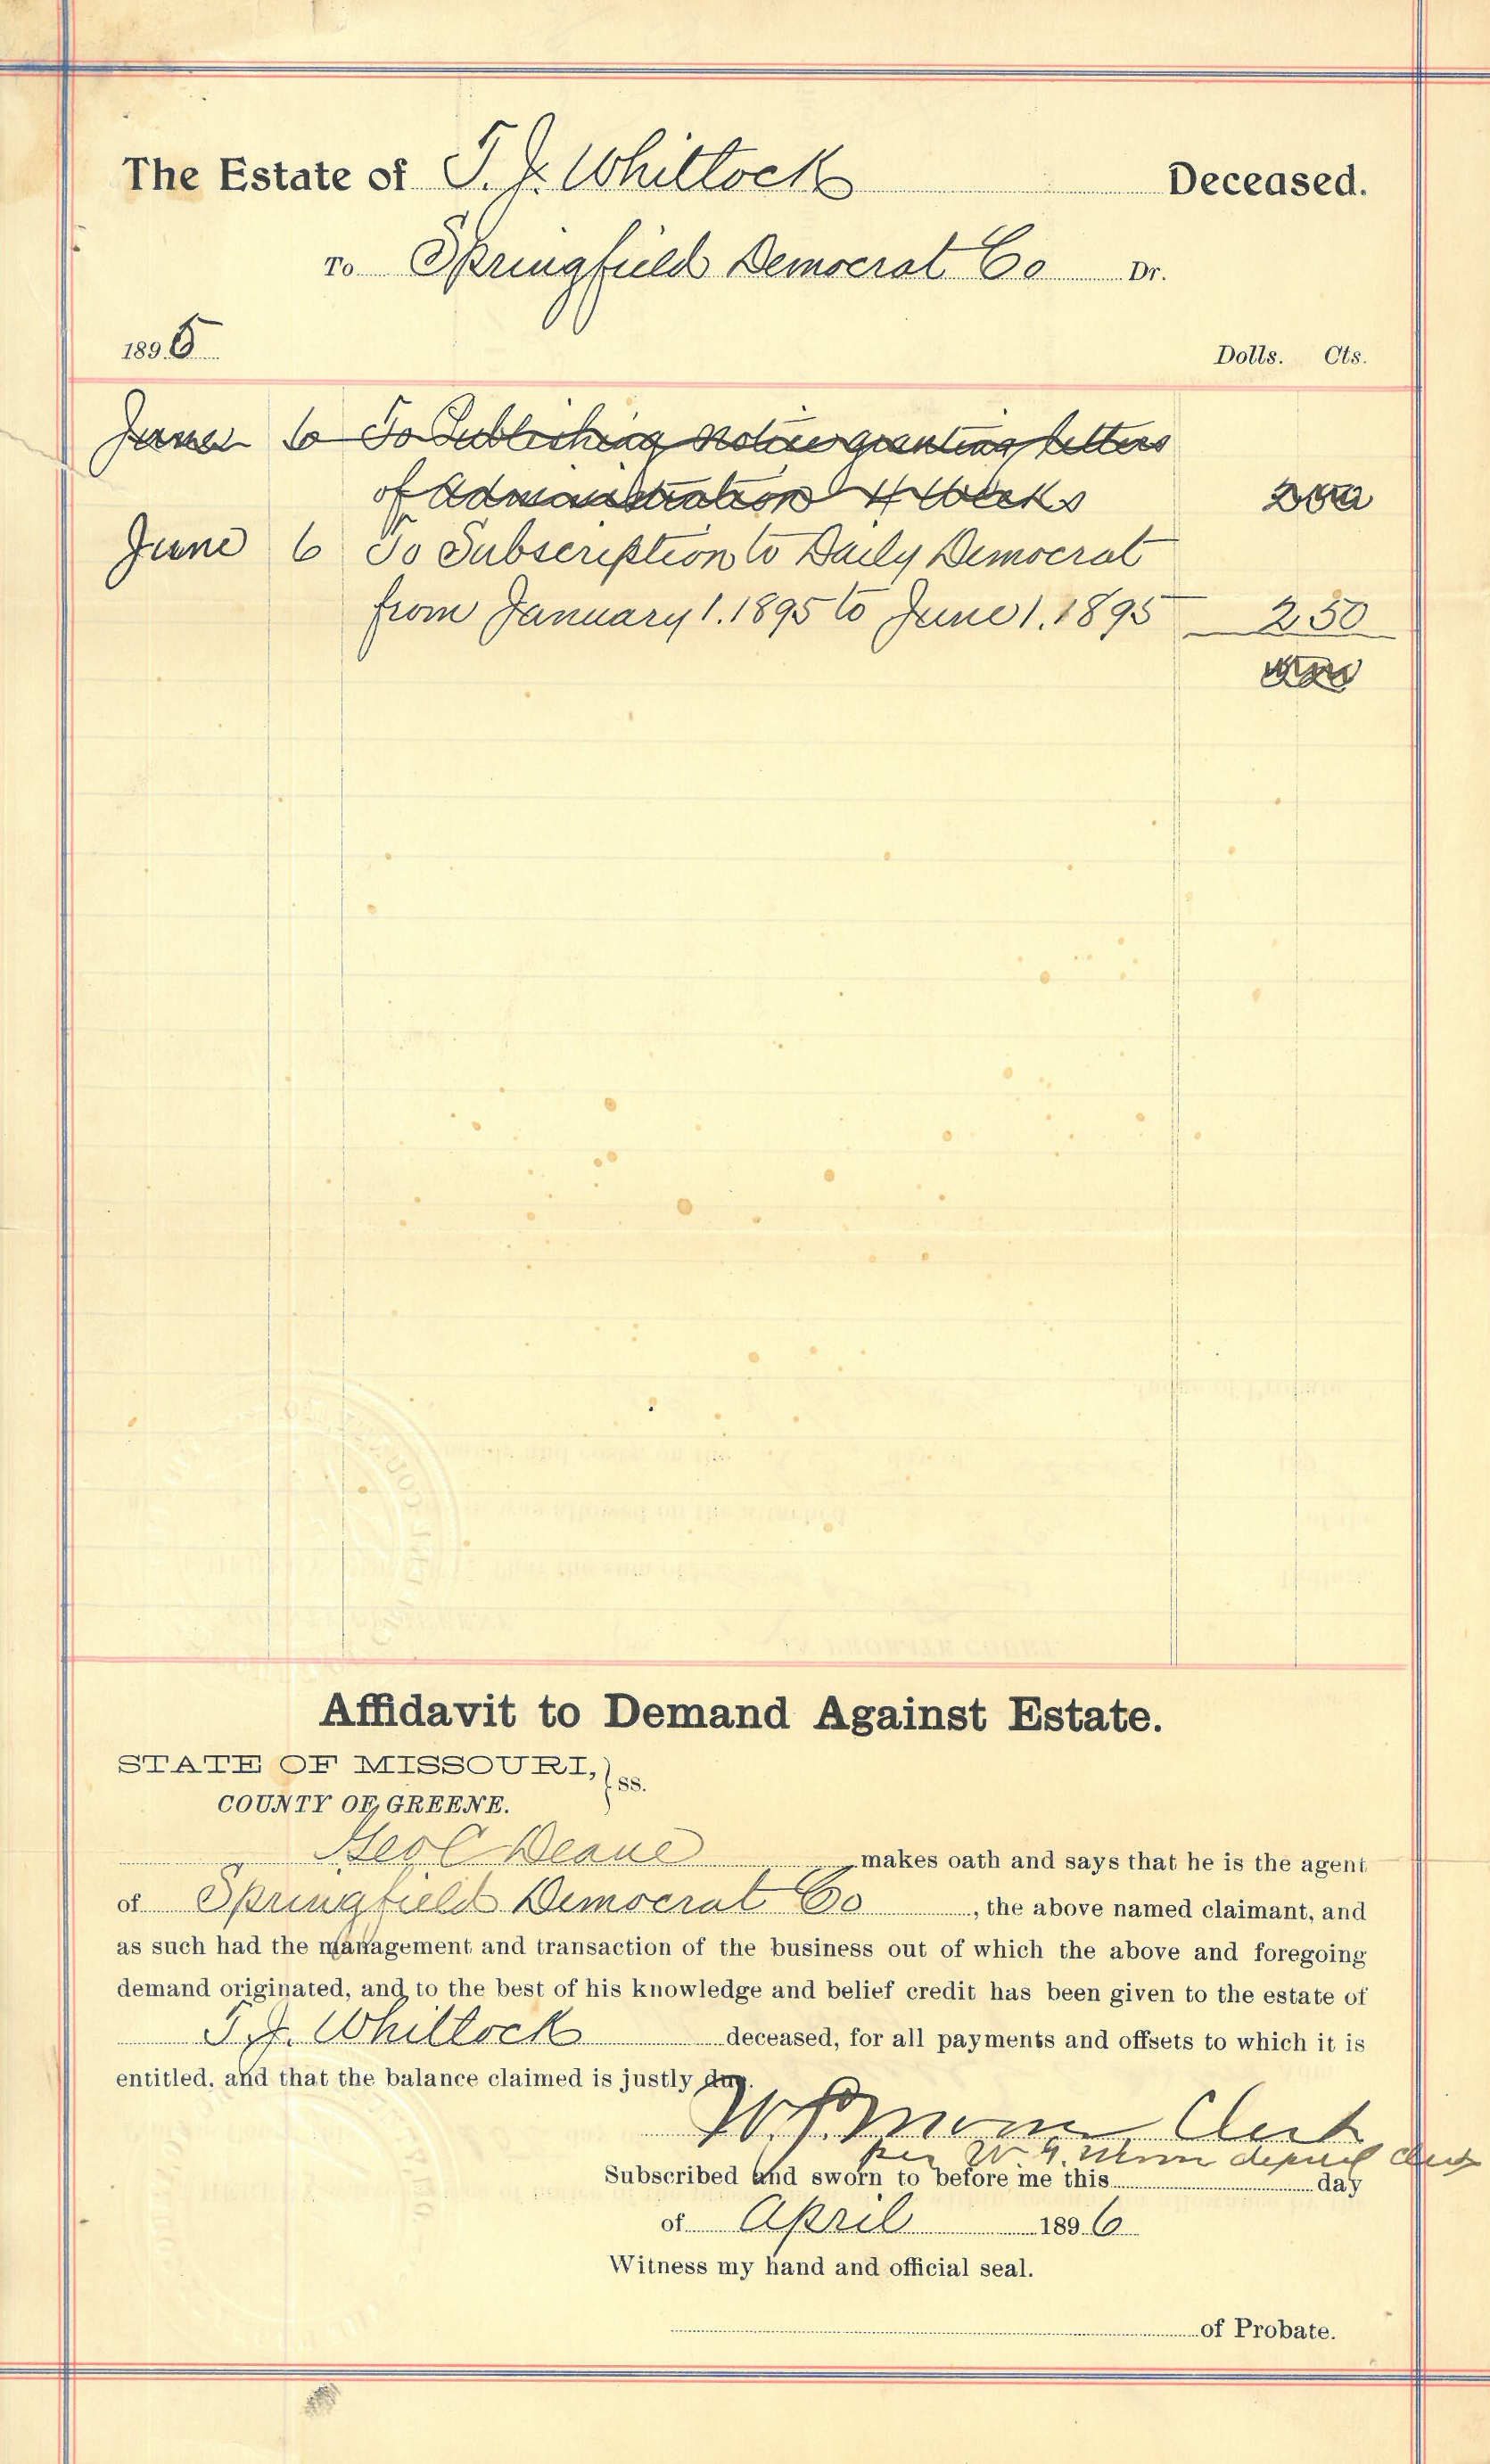 The Estate of T. J. Whitlock Deceased.
To Springfield Democrat Co Dr.
1895 Dolls. Cts.
June 6 To Publishing notice granting letters
of Administration 4 Weeks
June 6 To Subscription to Daily Democrat
from January 1. 1895 to June 1. 1895 2 50
Affidavit to Demand Against Estate.
STATE OF MISSOURI, } ss.
COUNTY OF GREENE.
Geo C Deane makes oath and says that he is the agent
of Springfield Democrat Co, the above named claimant, and
as such had the management and transaction of the business out of which the above and foregoing
demand originated, and to the best of his knowledge and belief credit has been given to the estate of
T. J. Whitlock deceased, for all payments and offsets to which it is
entitled, and that the balance claimed is justly due.
Clerk
per W. G. deputy clerk
Subscribed and sworn to before me this day
of April 1896
Witness my hand and official seal.
of Probate.